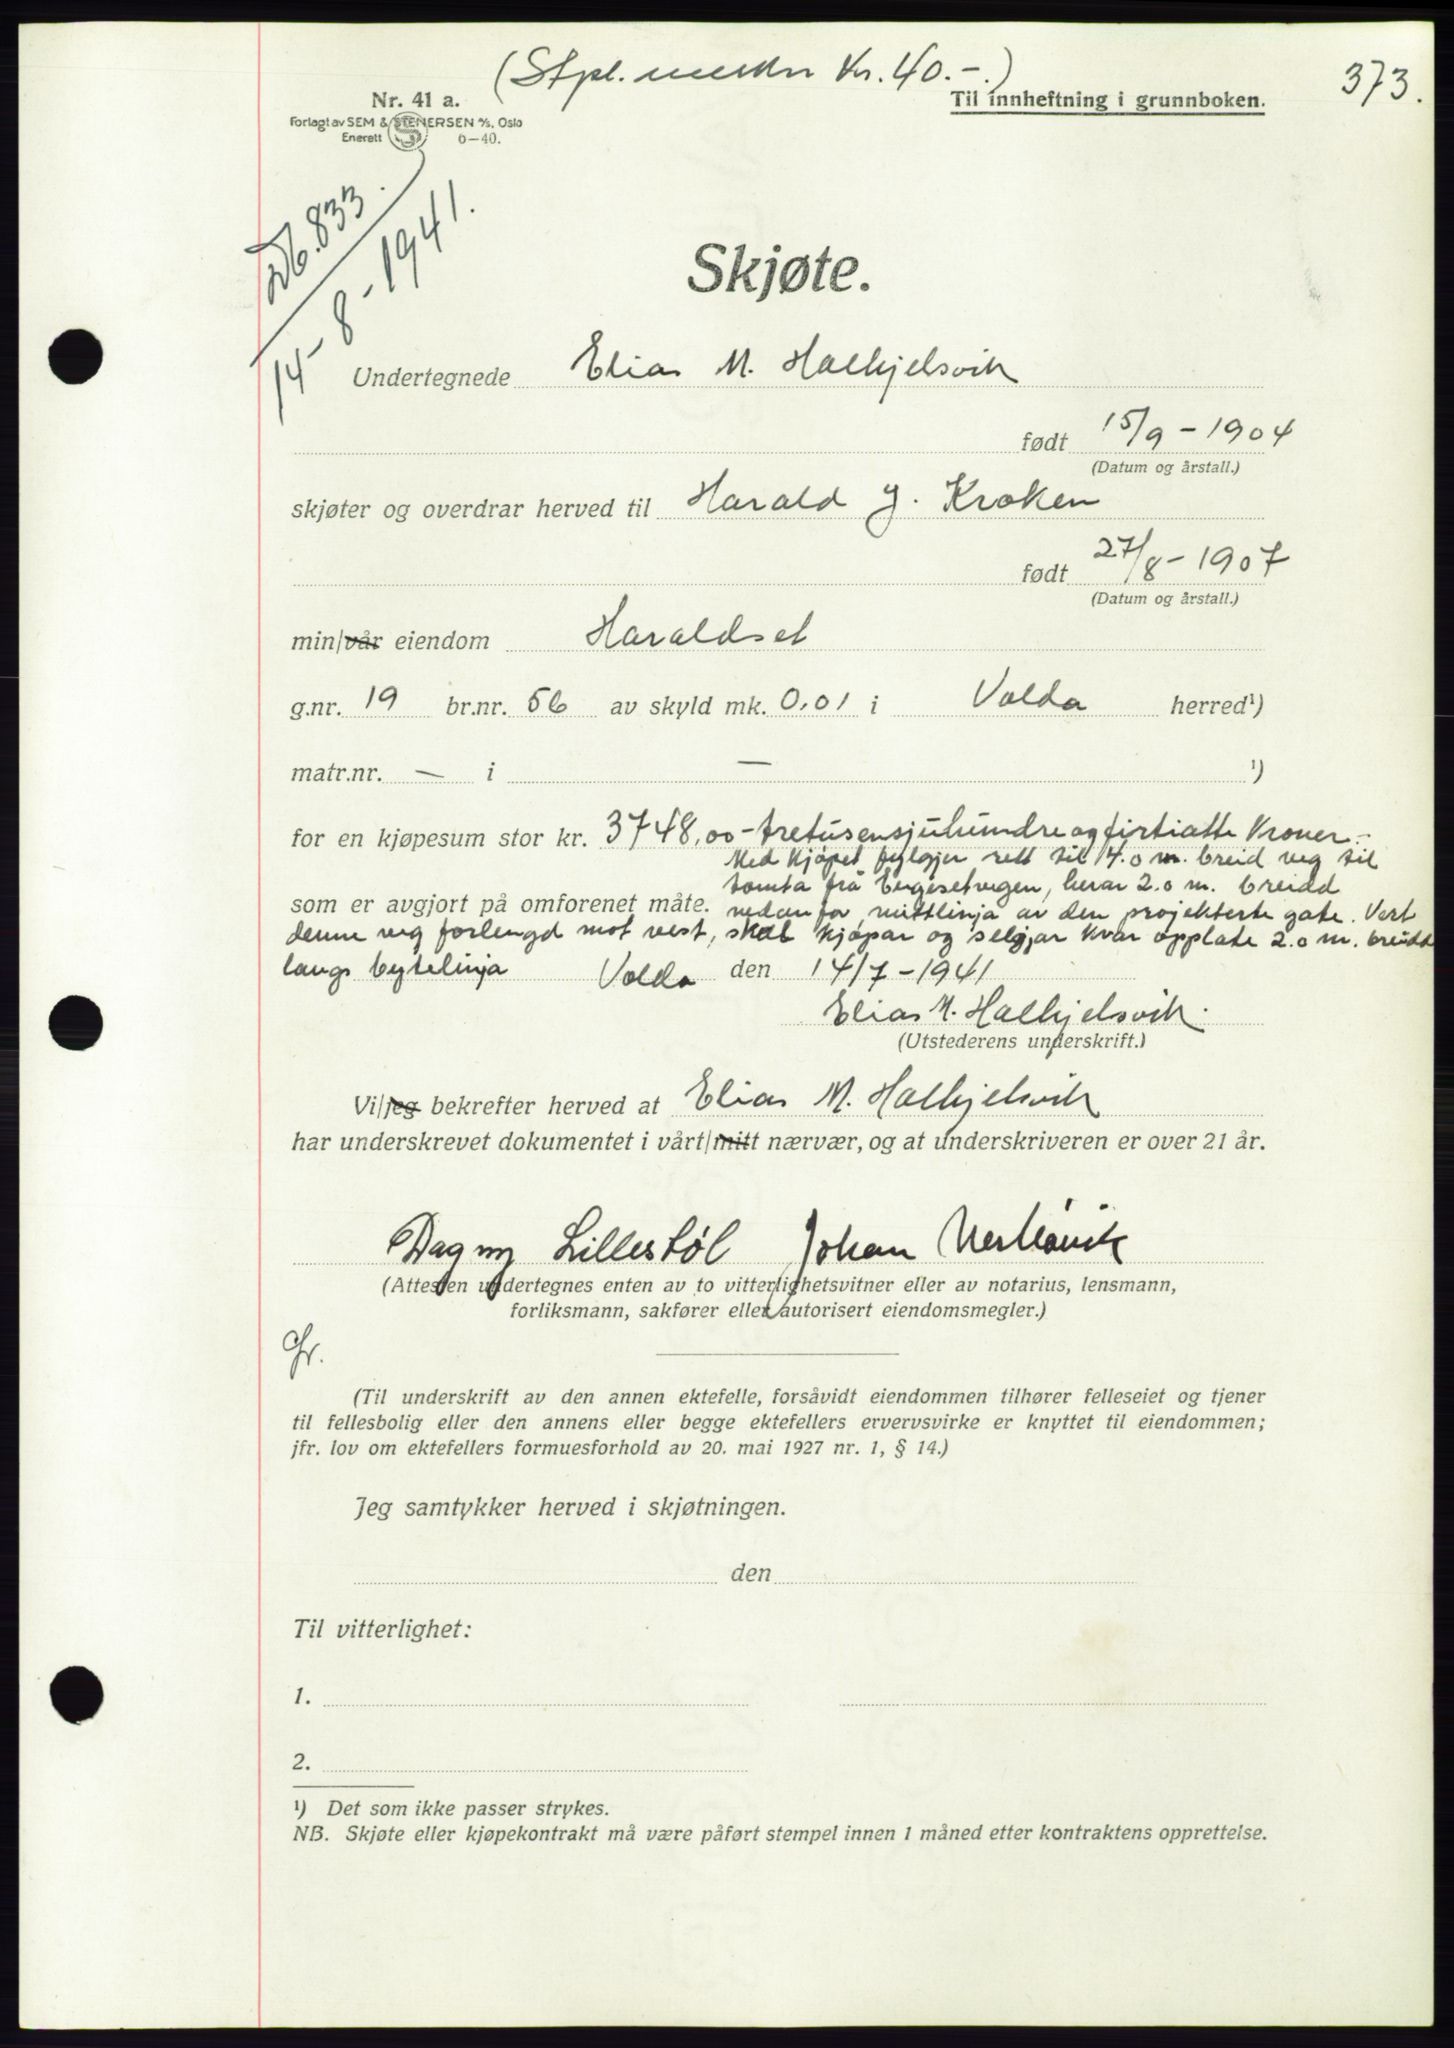 (Stpl. merker Kr. 40.-.)
373.
Nr. 41 a.
Til innheftning i grunnboken.
Forlagt av SEM & STENERSEN A/S, Oslo
Enerett S 6-40.
Db. 833.
14-8-1941.
Skjøte.
Undertegnede Elias M. Halkjelsvik
født 15/9 - 1904
(Datum og årstall.)
skjøter og overdrar herved til Harald J. Kroken
født 27/8 - 1907
(Datum og årstall.)
min/vår eiendom Haraldset
g.nr. 19 br.nr. 56 av skyld mk. 0,01 i Volda herred¹)
matr.nr. — i — ¹)
for en kjøpesum stor kr. 3748,00 - tretusensjuhundreogfirtiatte Kroner.-
Med kjøpet fylgjer rett til 4.0 m. breid veg til
tomta frå Engesetvegen, herav 2.0 m. breidd
som er avgjort på omforenet måte. nedanfor mittlinja av den projekterte gate. Vert
denne veg forlengd mot vest, skal kjøpar og seljar kvar opplate 2.0 m. breidd
langs bytelinja
Volda den 14/7 - 1941
Elias M. Halkjelsvik.
(Utstederens underskrift.)
Vi/jeg bekrefter herved at Elias M. Halkjelsvik
har underskrevet dokumentet i vårt/mitt nærvær, og at underskriveren er over 21 år.
Dagny Lillestøl Johan
(Attesten undertegnes enten av to vitterlighetsvitner eller av notarius, lensmann,
forliksmann, sakfører eller autorisert eiendomsmegler.)
(Til underskrift av den annen ektefelle, forsåvidt eiendommen tilhører felleseiet og tjener
til fellesbolig eller den annens eller begge ektefellers ervervsvirke er knyttet til eiendommen;
jfr. lov om ektefellers formuesforhold av 20. mai 1927 nr. 1, § 14.)
Jeg samtykker herved i skjøtningen.
den
Til vitterlighet:
1.
2.
¹) Det som ikke passer strykes.
NB. Skjøte eller kjøpekontrakt må være påført stempel innen 1 måned etter kontraktens opprettelse.